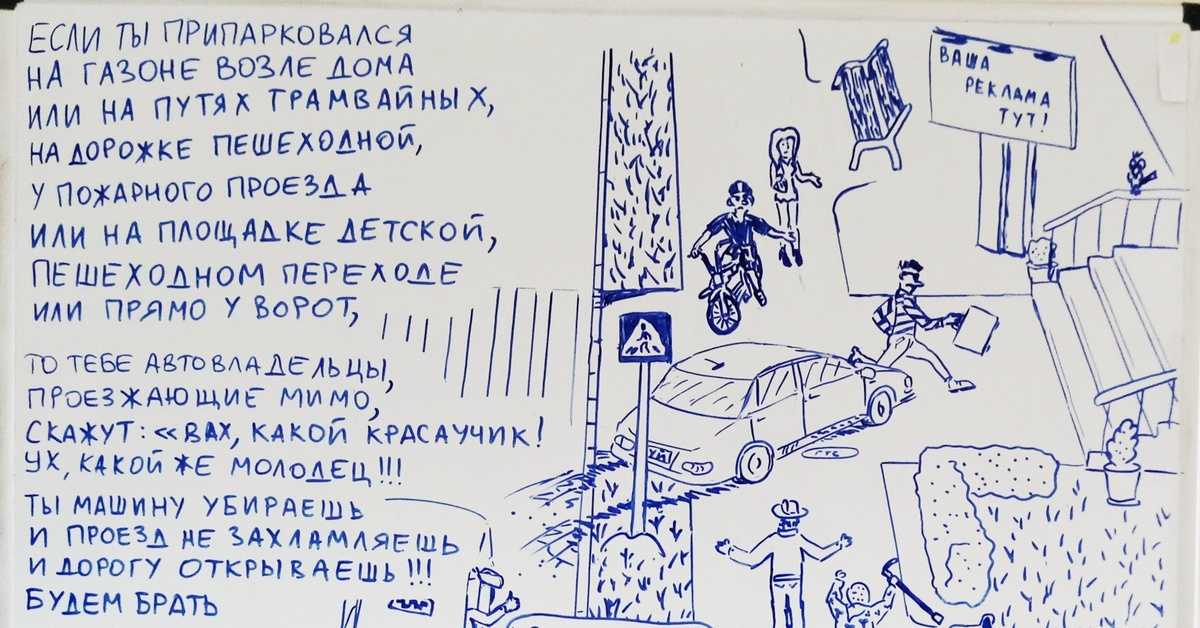 ЕСЛИ ТЫ ПРИПАРКОВАЛСЯ
НА ГАЗОНЕ ВОЗЛЕ ДОМА
ИЛИ НА ПУТЯХ ТРАМВАЙНЫХ,
НА ДОРОЖКЕ ПЕШЕХОДНОЙ,
У ПОЖАРНОГО ПРОЕЗДА
ИЛИ НА ПЛОЩАДКЕ ДЕТСКОЙ,
ПЕШЕХОДНОМ ПЕРЕХОДЕ
ИЛИ ПРЯМО У ВОРОТ,
ТО ТЕБЕ АВТОВЛАДЕЛЬЦЫ,
ПРОЕЗЖАЮЩИЕ МИМО,
СКАЖУТ: «ВАХ, КАКОЙ КРАСАУЧИК!
УХ, КАКОЙ ЖЕ МОЛОДЕЦ!!!
ТЫ МАШИНУ УБИРАЕШЬ
И ПРОЕЗД НЕ ЗАХЛАМЛЯЕШЬ
И ДОРОГУ ОТКРЫВАЕШЬ!!!
БУДЕМ БРАТЬ
ВАША
РЕКЛАМА
ТУТ!